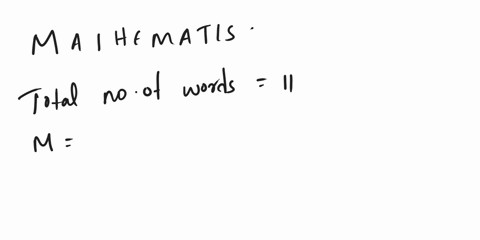 MAIHEMATIS.
Total no. of words = 11
M =